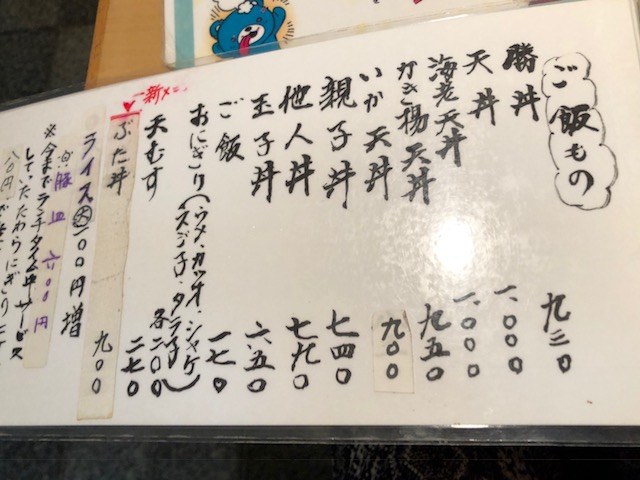 ご飯もの
勝丼 九三〇
天丼 一、〇〇〇
海老天丼 一、〇〇〇
かき揚天丼 九五〇
いか天丼 九〇〇
親子丼 七四〇
他人丼 七九〇
玉子丼 六五〇
ご飯 一七〇
おにぎり(ウメ・カツオ・シャケ
スジ子・タラ子) 各二〇〇
天むす 二七〇
新メ
ぶた丼 九〇〇
ライス大一〇〇円増
豚皿 六〇〇円
※今までランチタイム中サービス
していたたわらにぎり
八〇円